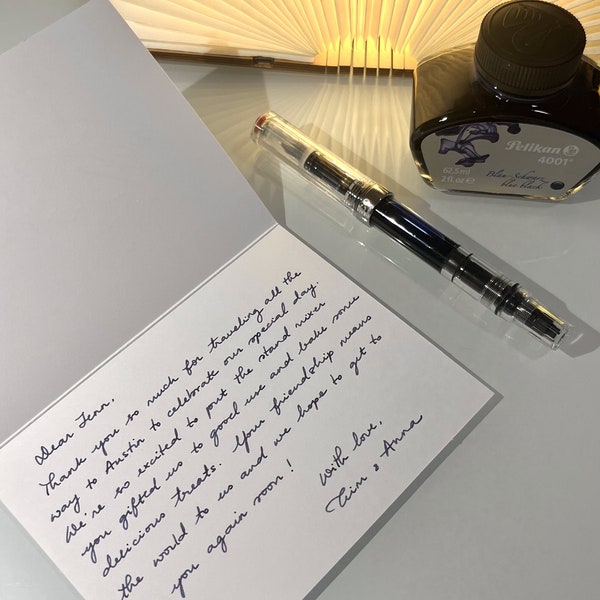 Pelikan
4001®
62,5ml
2 fl.oz ℮
Blau-Schwarz
blue-black
Dear Jenn,
Thank you so much for traveling all the
way to Austin to celebrate our special day.
We're so excited to put the stand mixer
you gifted us to good use and bake some
delicious treats. Your friendship means
the world to us and we hope to get to
you again soon!
With love,
& Anna